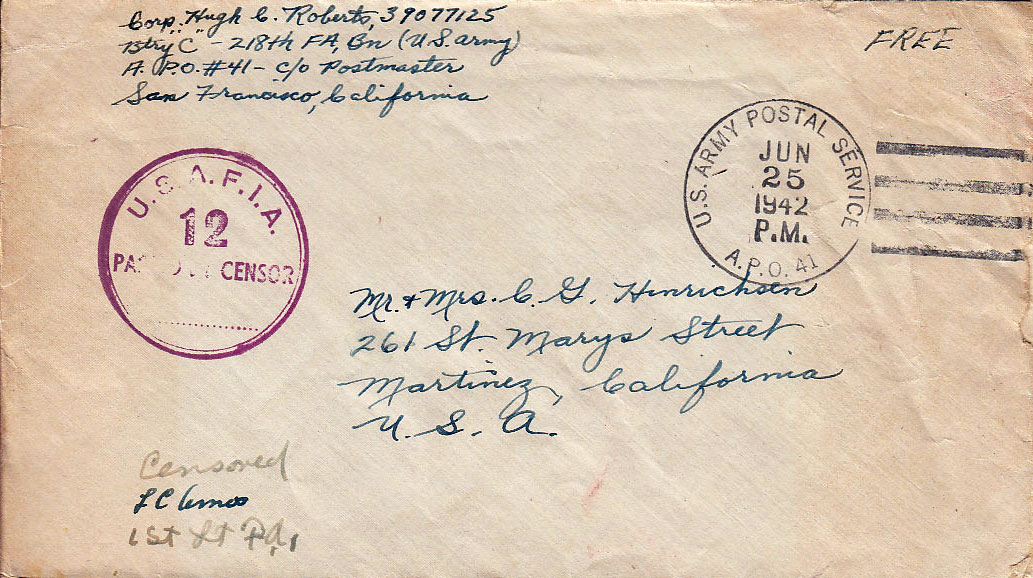 Corp. Hugh C. Roberts, 39077125
Btry "C" - 218th FA, Bn (U.S. army)
A. P.O. #41 - c/o Postmaster
San Francisco, California
FREE
U.S. ARMY POSTAL SERVICE
JUN
25
1942
P.M.
A.P.O. 41
U.S.A.F.I.A.
12
CENSOR
Mr. & Mrs. C. G. Hinrichsen
261 St. Marys Street
Martinez, California
U. S. A.
Censored
1st Lt